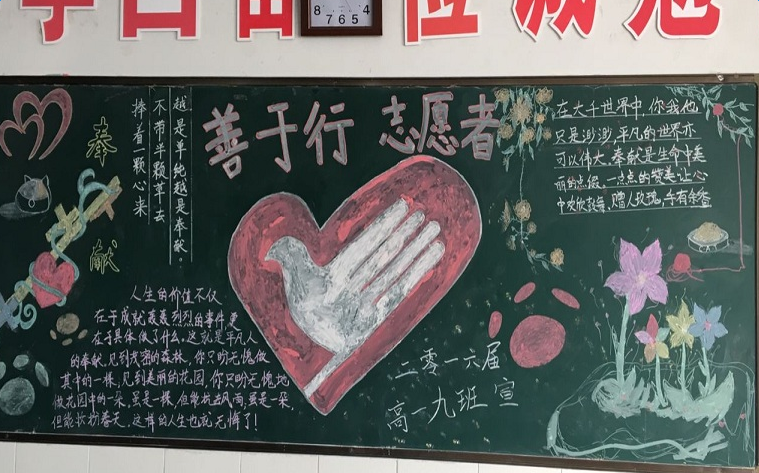 8 7 6 5 4
善于行 志愿者
奉献
越是单纯越是奉献。
不带半颗草去
捧着一颗心来
在大千世界中,你我他
只是渺渺,平凡的世界亦
可以伟大,奉献是生命中美
丽的点缀,一点点的赞美,让心
中欢欣鼓舞,赠人玫瑰,手有余香
人生的价值不仅
在于成就轰轰烈烈的事件,更
在于具体做了什么,这就是平凡人
的奉献,见到茂密的森林,你只盼无愧做
其中的一株,见到美丽的花园,你只盼无愧地
做花园中的一朵,虽是一棵,但能抗击风雨,虽是一朵,
但能妆扮春天,这样的人生也就无悔了!
二零一六届
高一九班 宣